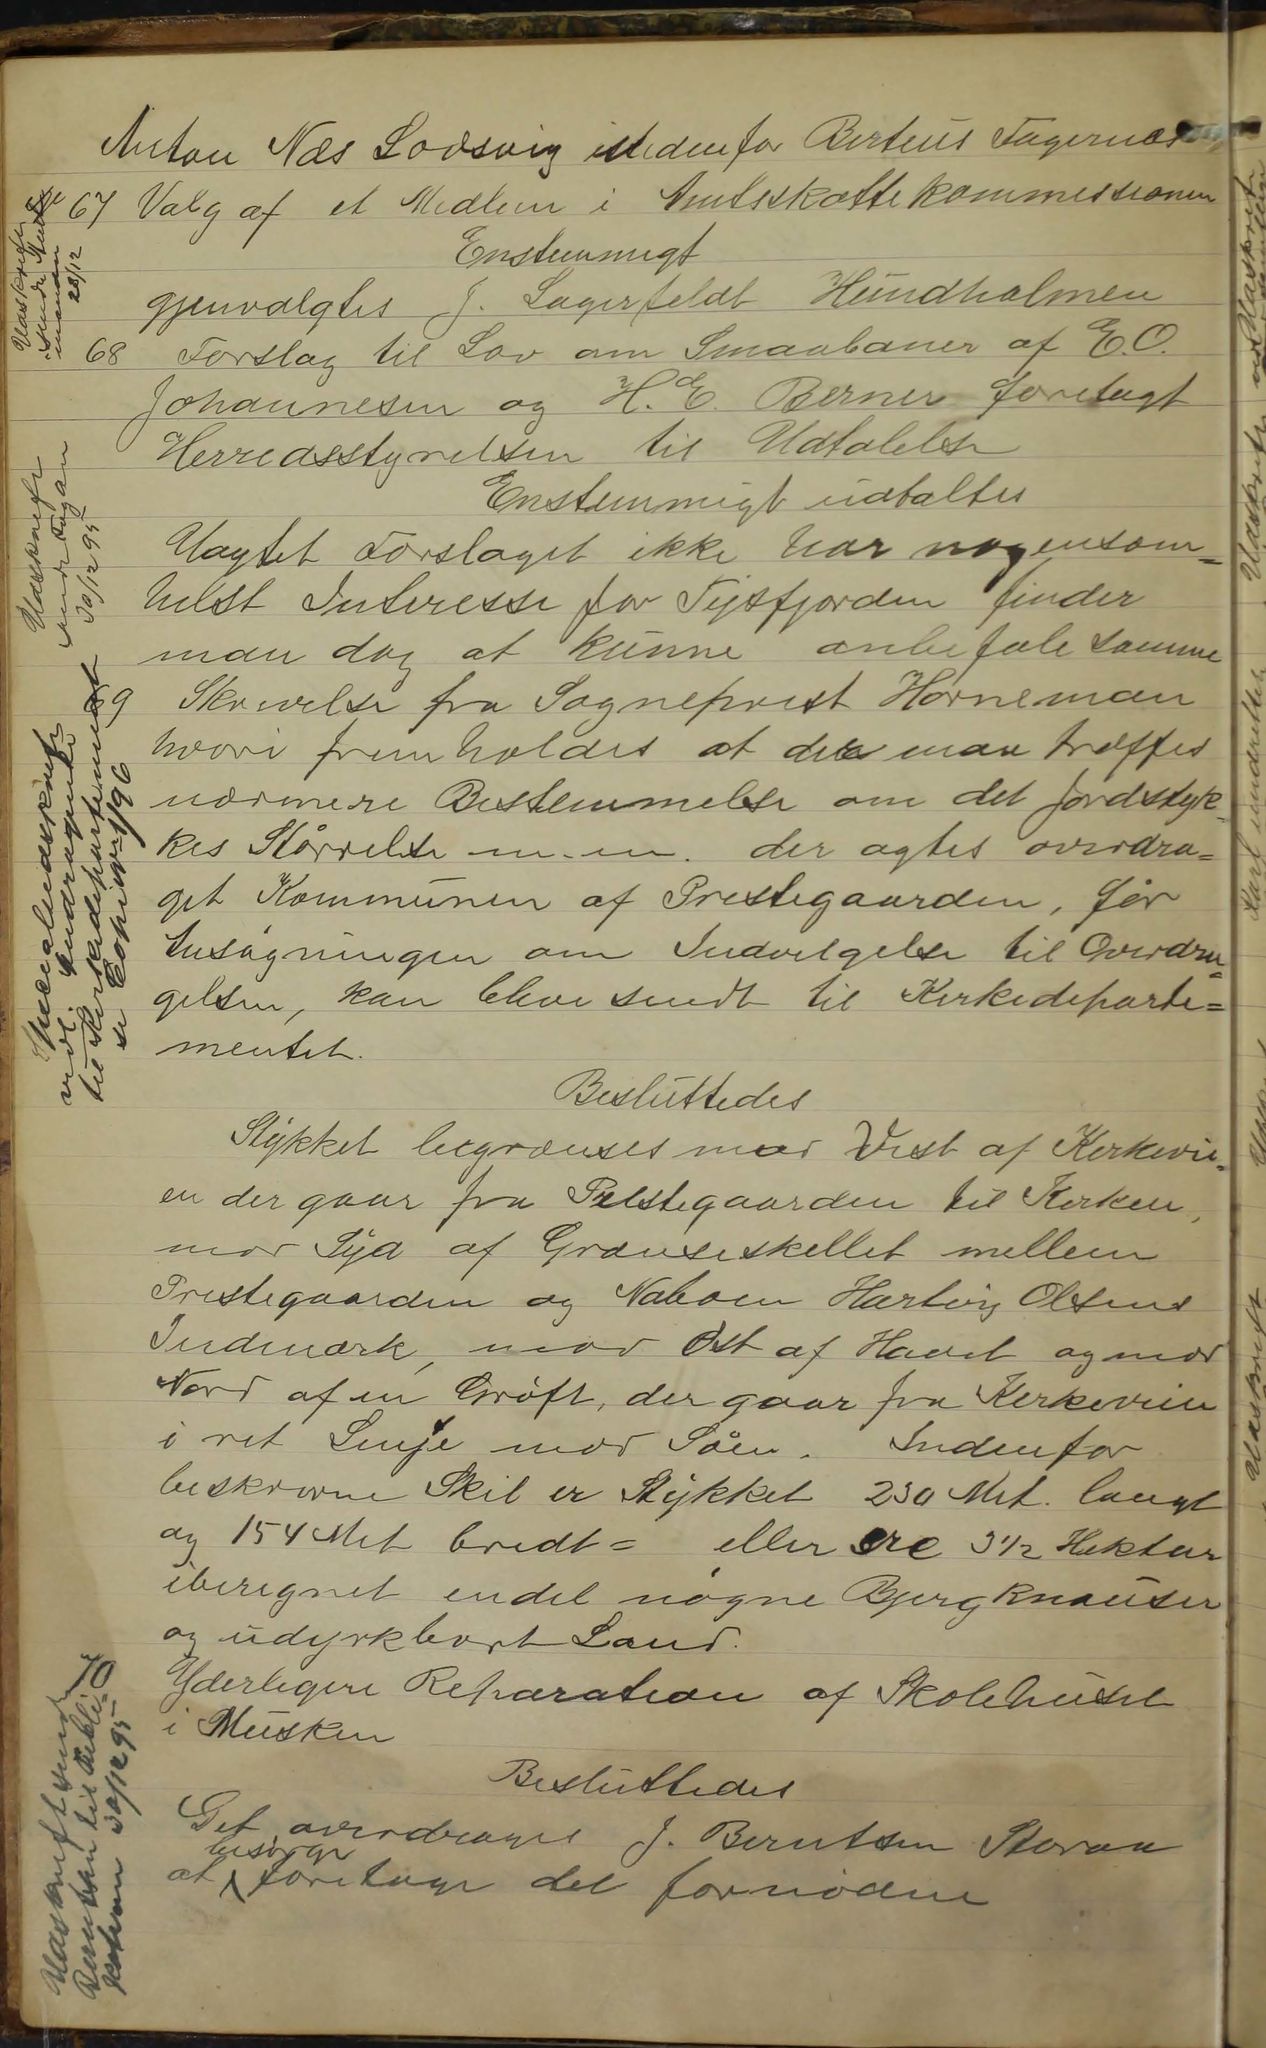 Anton Næs Lodsvig istedenfor Berteus Fagernæs
67 Valg af et Medlem i Amtsskattekommissionen
Enstemmigt
gjenvalgtes J. Lagerfeldt Hundholmen
68 Forslag til Lov om Smaabaner af E.O.
Johannesen og H.E. Berner forelagt
Herredsstyrelsen til Udtalelse
Enstemmigt udtaltes
Uagtet Forslaget ikke har nogensom=
helst Interesse for Tysfjorden finder
man dog at kunne anbefale samme
69 Skrivelse fra Sogneprest Horneman
hvori fremholdes at der maa træffes
nærmere Bestemmelse om det Jordstyk
kes Størrelse m.m. der agtes overdra=
get Kommunen af Prestegaarden, før
Ansøgningen om Indvilgelse til Overdra=
gelsen, kan blive sendt til Kirkedeparte=
mentet.
Besluttedes
Stykket begrænses mod Vest af Kirkevei=
en der gaar fra Prestegaarden til Kirken,
mod Syd af Grænseskellet mellem
Prestegaarden og Naboen Hartvig Olsens
Indmark, mod Øst af Havet og mod
Nord af en Grøft, der gaar fra Kirkeveien
i ret Linje mod Søen. Indenfor
beskrevne Skil er Stykket 230 Met. langt
og 154 Met bredt = eller 3 1/2 Hektar
iberegnet endel nøgne Bjergknauser
og udyrkbart Land.
70 Yderligere Reparation af Skolehuset
i Musken
Besluttedes
Det overdrages J. Berntsen Storaa
besørge
at foretage det fornødne
Udskrift
28/12
Udskrift
sendt Fogden
30/12 95
Specialudskrift
vedl. Andragende
til Kirkedepartementet
se Copi 1/96
Udskrift sendt
Berntsen til
30/12 95